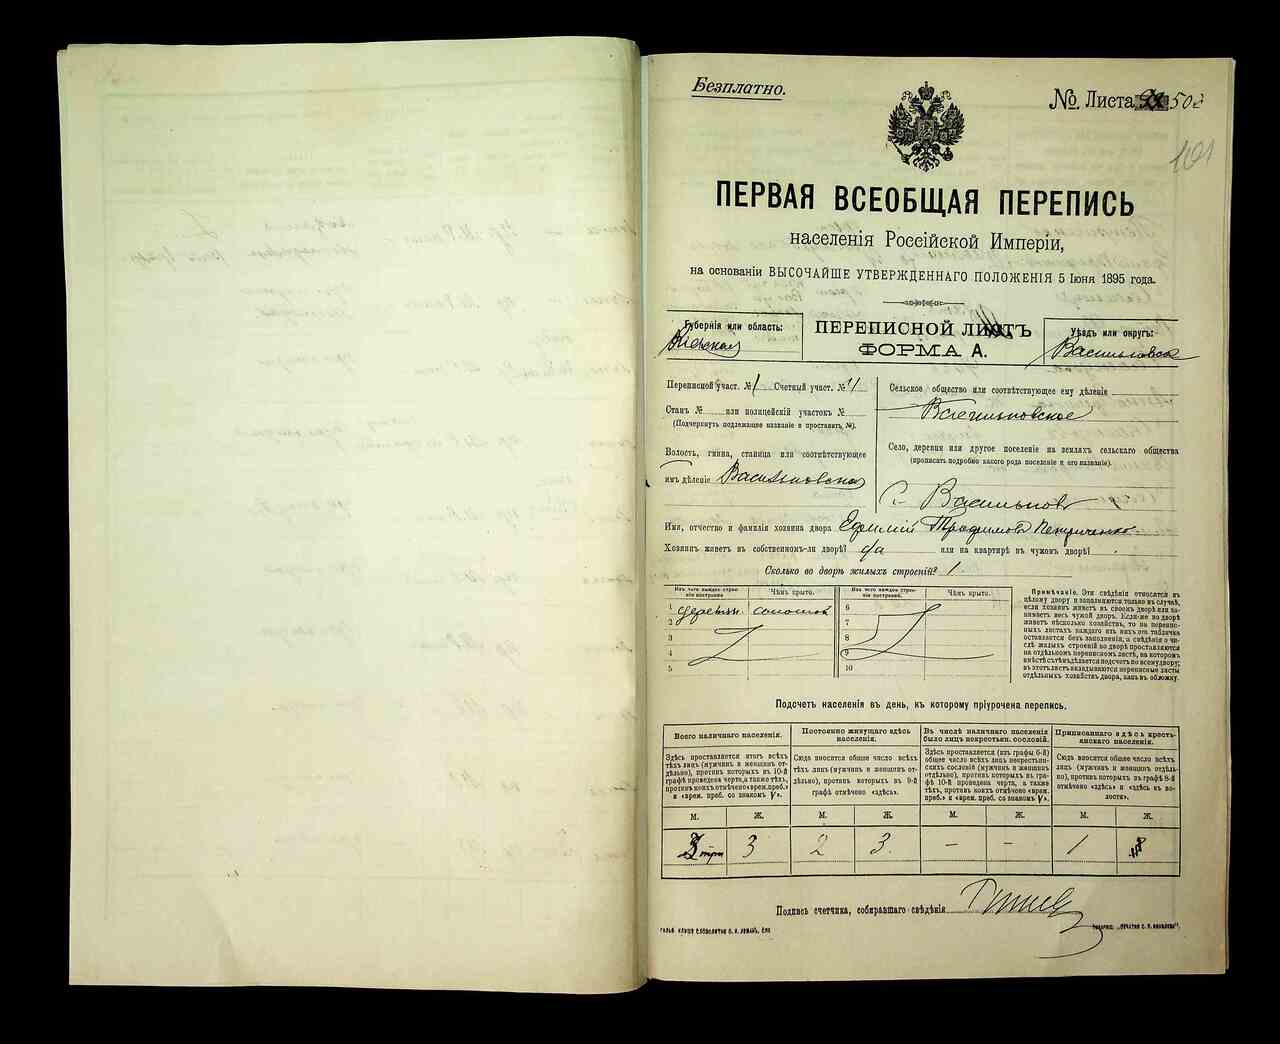 Безплатно.
№ Листа 502
101
ПЕРВАЯ ВСЕОБЩАЯ ПЕРЕПИСЬ
населенія Россійской Имперіи,
на основаніи ВЫСОЧАЙШЕ УТВЕРЖДЕННАГО ПОЛОЖЕНІЯ 5 Іюня 1895 года.
Губернія или область:
Кіевская
ПЕРЕПИСНОЙ ЛИСТЪ
ФОРМА А.
Уѣздъ или округъ:
Васильковск
Переписной участ. № 1 Счетный участ. №
Станъ № или полицейскій участокъ №
(Подчеркнуть подлежащее названіе и проставить №).
Волость, гмина, станица или соотвѣтствующее
имъ дѣленіе Васильковская
Сельское общество или соотвѣтствующее ему дѣленіе
Васильковское
Село, деревня или другое поселеніе на земляхъ сельскаго общества
(прописать подробно какого рода поселеніе и его названіе).
С. Васильков
Имя, отчество и фамилія хозяина двора Ефимій Трофимовъ
Хозяинъ живетъ въ собственномъ-ли дворѣ? да или на квартирѣ въ чужомъ дворѣ?
Сколько во дворѣ жилыхъ строеній? 1
Изъ чего каждое строеніе построено. Чѣмъ крыто. Изъ чего каждое строеніе построено. Чѣмъ крыто.
1 деревян. соломой 6
2 7
3 8
4 9
5 10
Примѣчаніе. Эти свѣдѣнія относятся къ
цѣлому двору и заполняются только въ случаѣ,
если хозяинъ живетъ въ своемъ дворѣ или занимаетъ
весь чужой дворъ. Если-же во дворѣ
живетъ нѣсколько хозяйствъ, то на переписныхъ
листахъ каждаго изъ нихъ эта табличка
оставляется безъ заполненія, а свѣдѣнія о числѣ
жилыхъ строеній во дворѣ проставляются
на отдѣльномъ переписномъ листѣ, на которомъ
вмѣстѣ съ тѣмъ дѣлается подсчетъ по всему двору;
въ этотъ листъ вкладываются переписные листы
отдѣльныхъ хозяйствъ двора, какъ въ обложку.
Подсчетъ населенія въ день, къ которому пріурочена перепись.
Всего наличнаго населенія.
Здѣсь проставляется итогъ всѣхъ
тѣхъ лицъ (мужчинъ и женщинъ отдѣльно),
противъ которыхъ въ 10-й
графѣ проведена черта, а также тѣхъ,
противъ коихъ отмѣчено «врем. преб.»
и «врем. преб. со знакомъ V».
Постоянно живущаго здѣсь
населенія.
Сюда вносится общее число всѣхъ
тѣхъ лицъ (мужчинъ и женщинъ отдѣльно),
противъ которыхъ въ 9-й
графѣ отмѣчено «здѣсь».
Въ числѣ наличнаго населенія
было лицъ некрестьян. сословій.
Здѣсь проставляется (изъ графы 6-й)
общее число всѣхъ лицъ некрестьянскихъ
сословій (мужчинъ и женщинъ
отдѣльно), противъ которыхъ въ графѣ
10-й проведена черта, а также
тѣхъ, противъ коихъ отмѣчено «врем.
преб.» и «врем. преб. со знакомъ V».
Приписаннаго здѣсь крестьянскаго
населенія.
Сюда вносится общее число всѣхъ
лицъ (мужчинъ и женщинъ отдѣльно),
противъ которыхъ въ графѣ 8-й
отмѣчено «здѣсь» и «здѣсь въ волости».
М. Ж. М. Ж. М. Ж. М. Ж.
3 три 3 2 3. – – 1
Подпись счетчика, собиравшаго свѣдѣнія